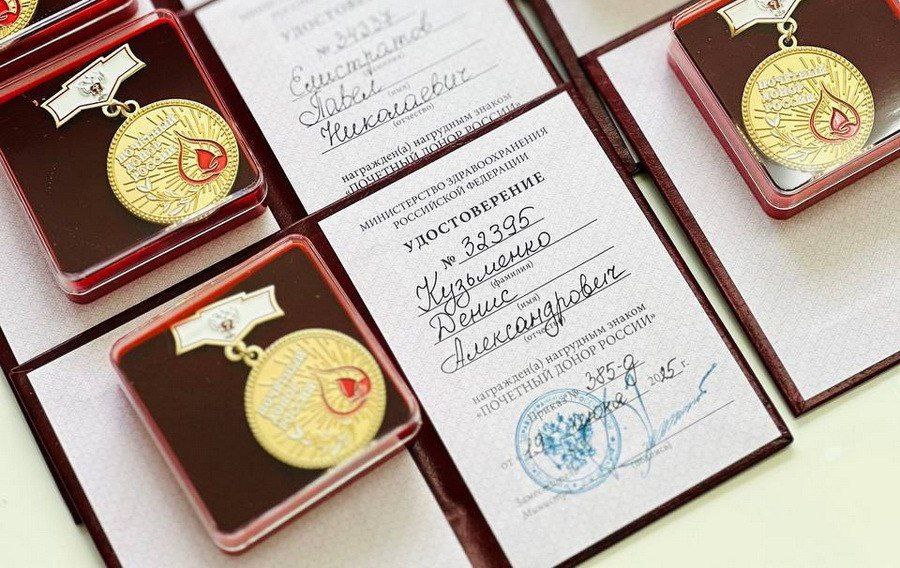 УДОСТОВЕРЕНИЕ
№ 34337
Елистратов
(фамилия)
Павел
(имя)
Николаевич
(отчество)
награжден(а) нагрудным знаком
«ПОЧЕТНЫЙ ДОНОР РОССИИ»
МИНИСТЕРСТВО ЗДРАВООХРАНЕНИЯ
РОССИЙСКОЙ ФЕДЕРАЦИИ
УДОСТОВЕРЕНИЕ
№ 32395
Кузьменко
(фамилия)
Денис
(имя)
Александрович
(отчество)
награжден(а) нагрудным знаком
«ПОЧЕТНЫЙ ДОНОР РОССИИ»
Приказ № 385-д
от 19 июня 2025 г.
(подпись)
ПОЧЕТНЫЙ
ДОНОР
РОССИИ
ПОЧЕТНЫЙ
ДОНОР
РОССИИ
ПОЧЕТНЫЙ
ДОНОР
РОССИИ